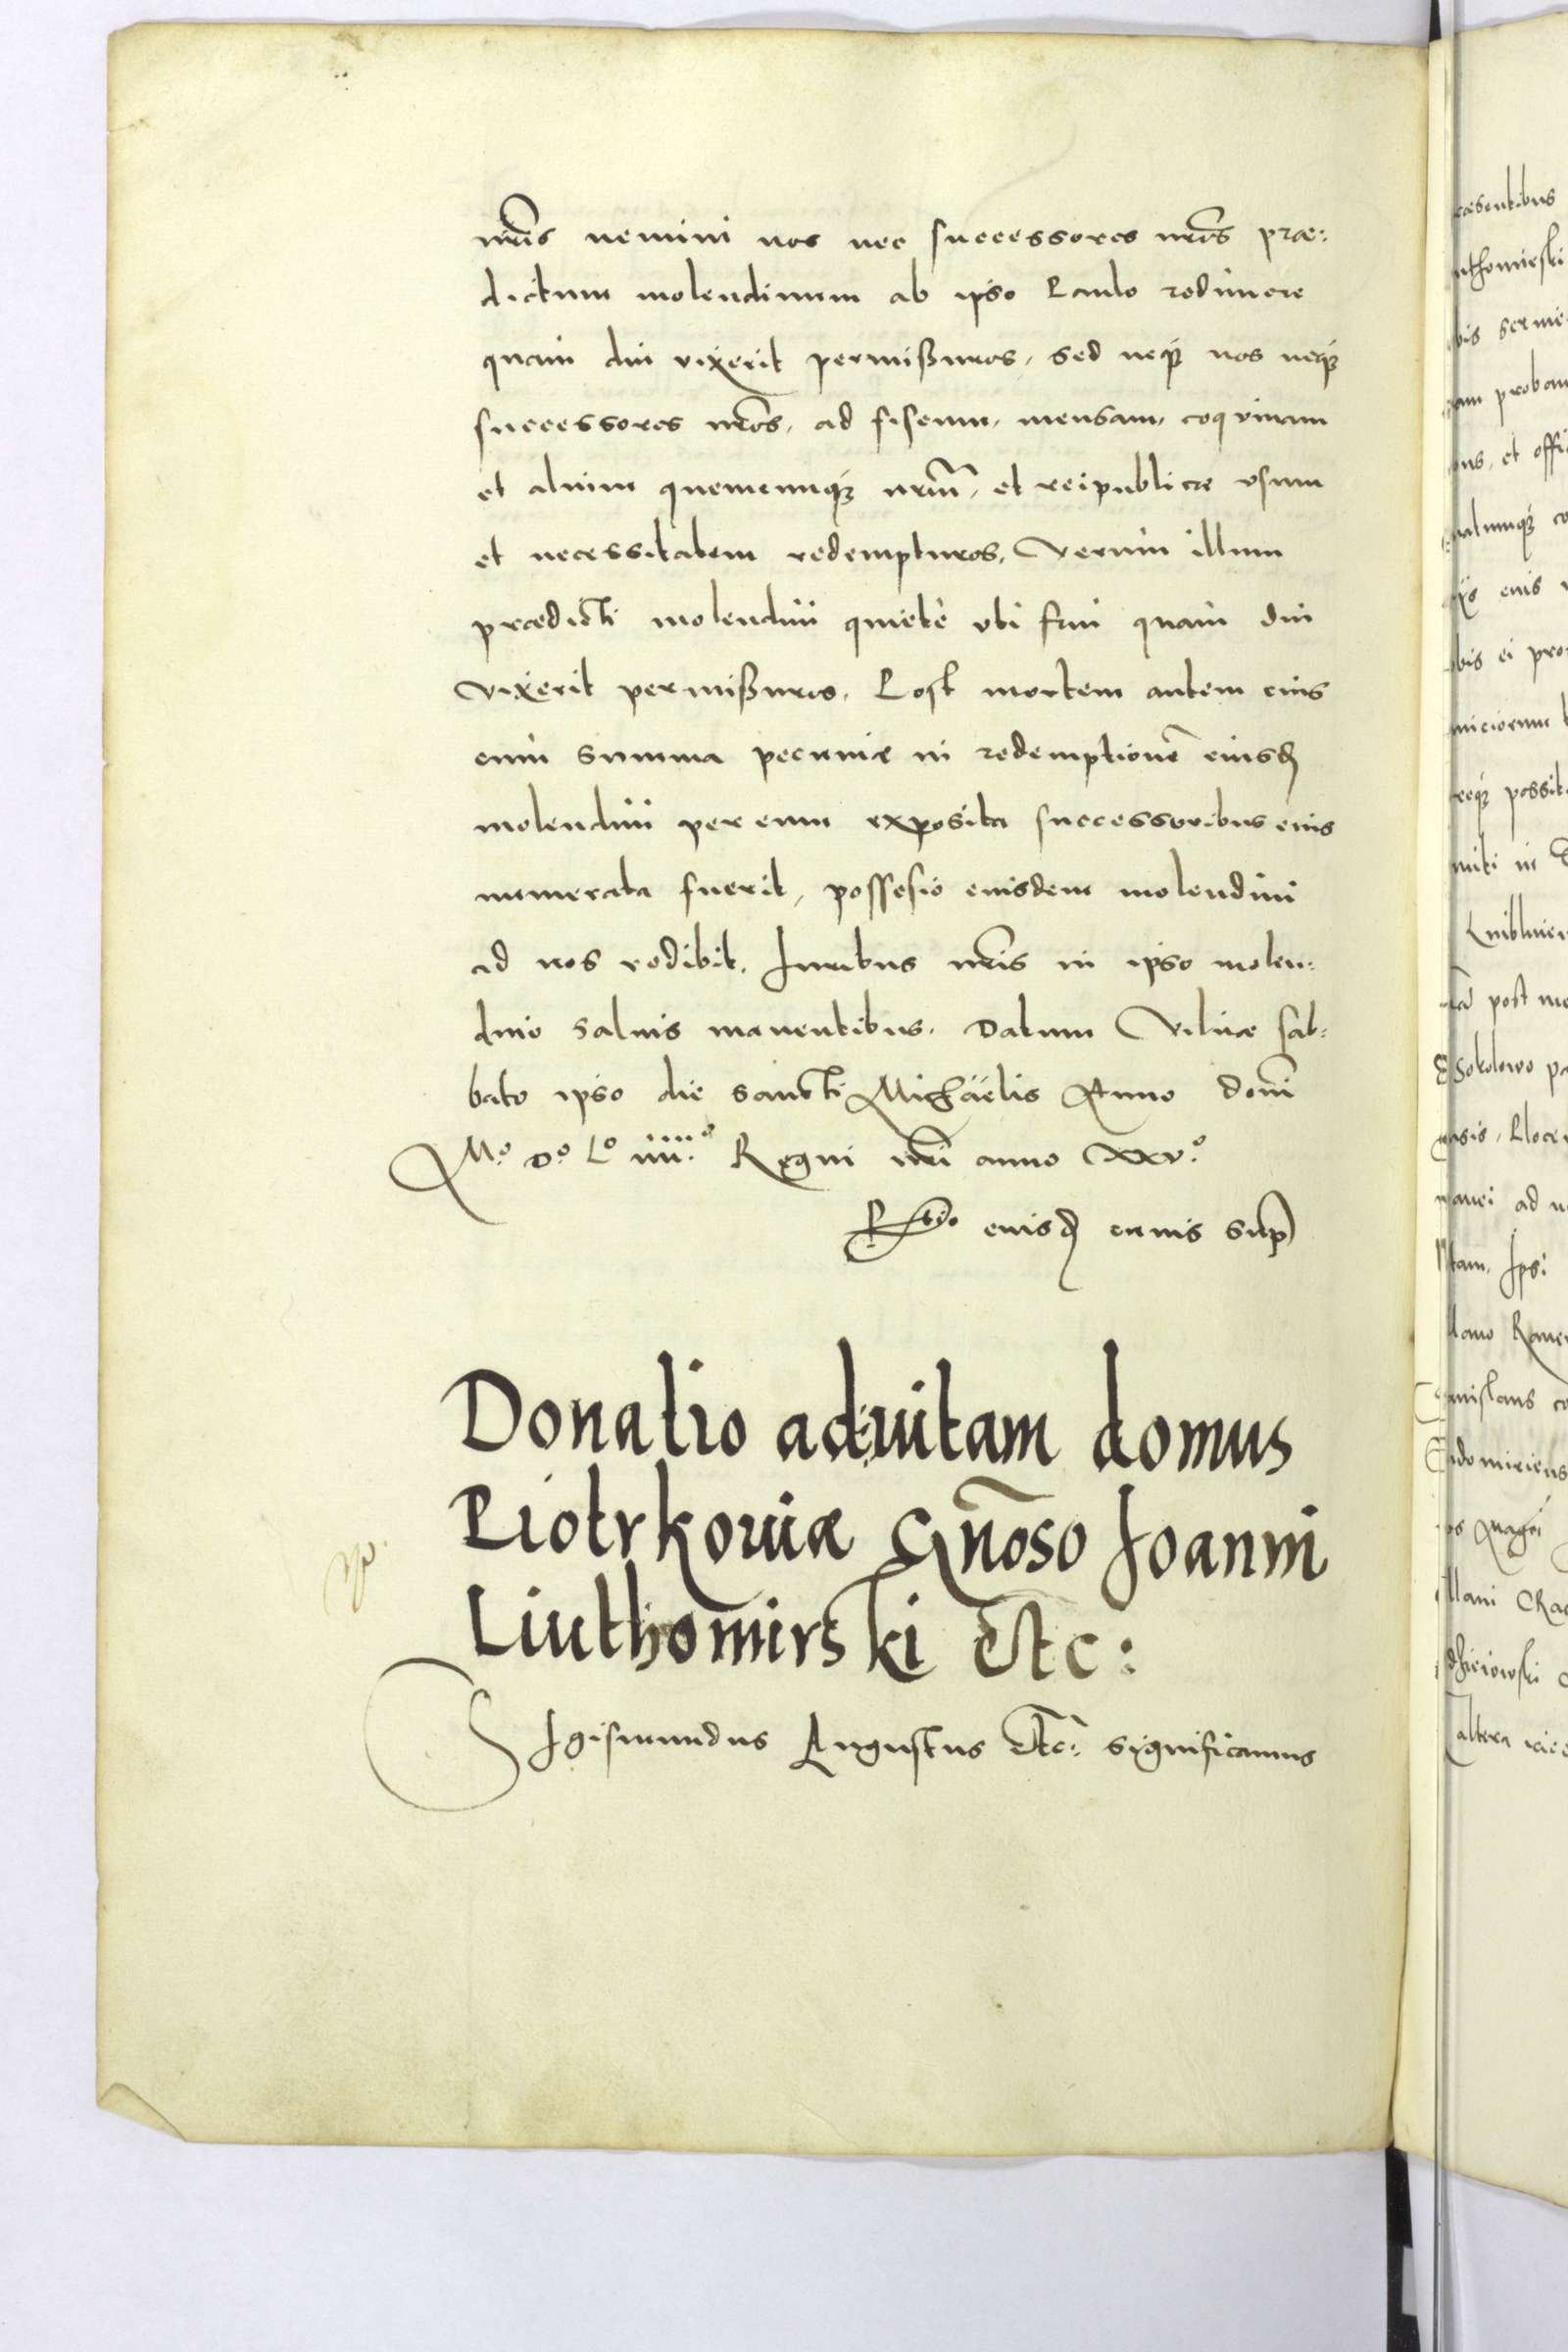 nr̃is nemini nos nec successores nr̃os præ:
dictum molendinum ab ipso Paulo redimere
quam diu vixerit permißuros, sed neqꝫ nos neqꝫ
successores nr̃os, ad fiscum, mensam, coquinam
et alium quemcunqꝫ nrũm, et reipublicæ vsum
et necessitatem redempturos, Verum illum
prædicti molendini quietè vti frui quam diu
vixerit permißuros. Post mortem autem eius
cum summa pecuniæ in redemptionẽ eiusd
molendini per eum exposita successoribus eius
numerata fuerit, possesio eiusdem molendini
ad nos redibit. Iuribus nr̃is in ipso molen:
dino saluis manentibus. Datum Vilnæ sab:
bato ipso die sancti Michäelis Anno dom̃i
Mº. Dº. Lº iiii.º Regni nr̃i anno xxv.º
eiusd cuius sup
Donatio ad vitam domus
Piotrkouiæ Gñoso Ioanni
Liuthomirski etc:
SIgismundus Augustus etc: significamus
ræsentibus
uthomirski
bis serme
am probam
us, et offi
alumqꝫ co
eius
bis ei pro
miciorum
reqꝫ possit
miti in
post mo
Sokolowo pa
nsis, Ploce
manei ad n
tam. Ipsi
lano Rauen
mislaus co
ndomiriens
os Magri
llani Cra
dhieiowski
altera vice